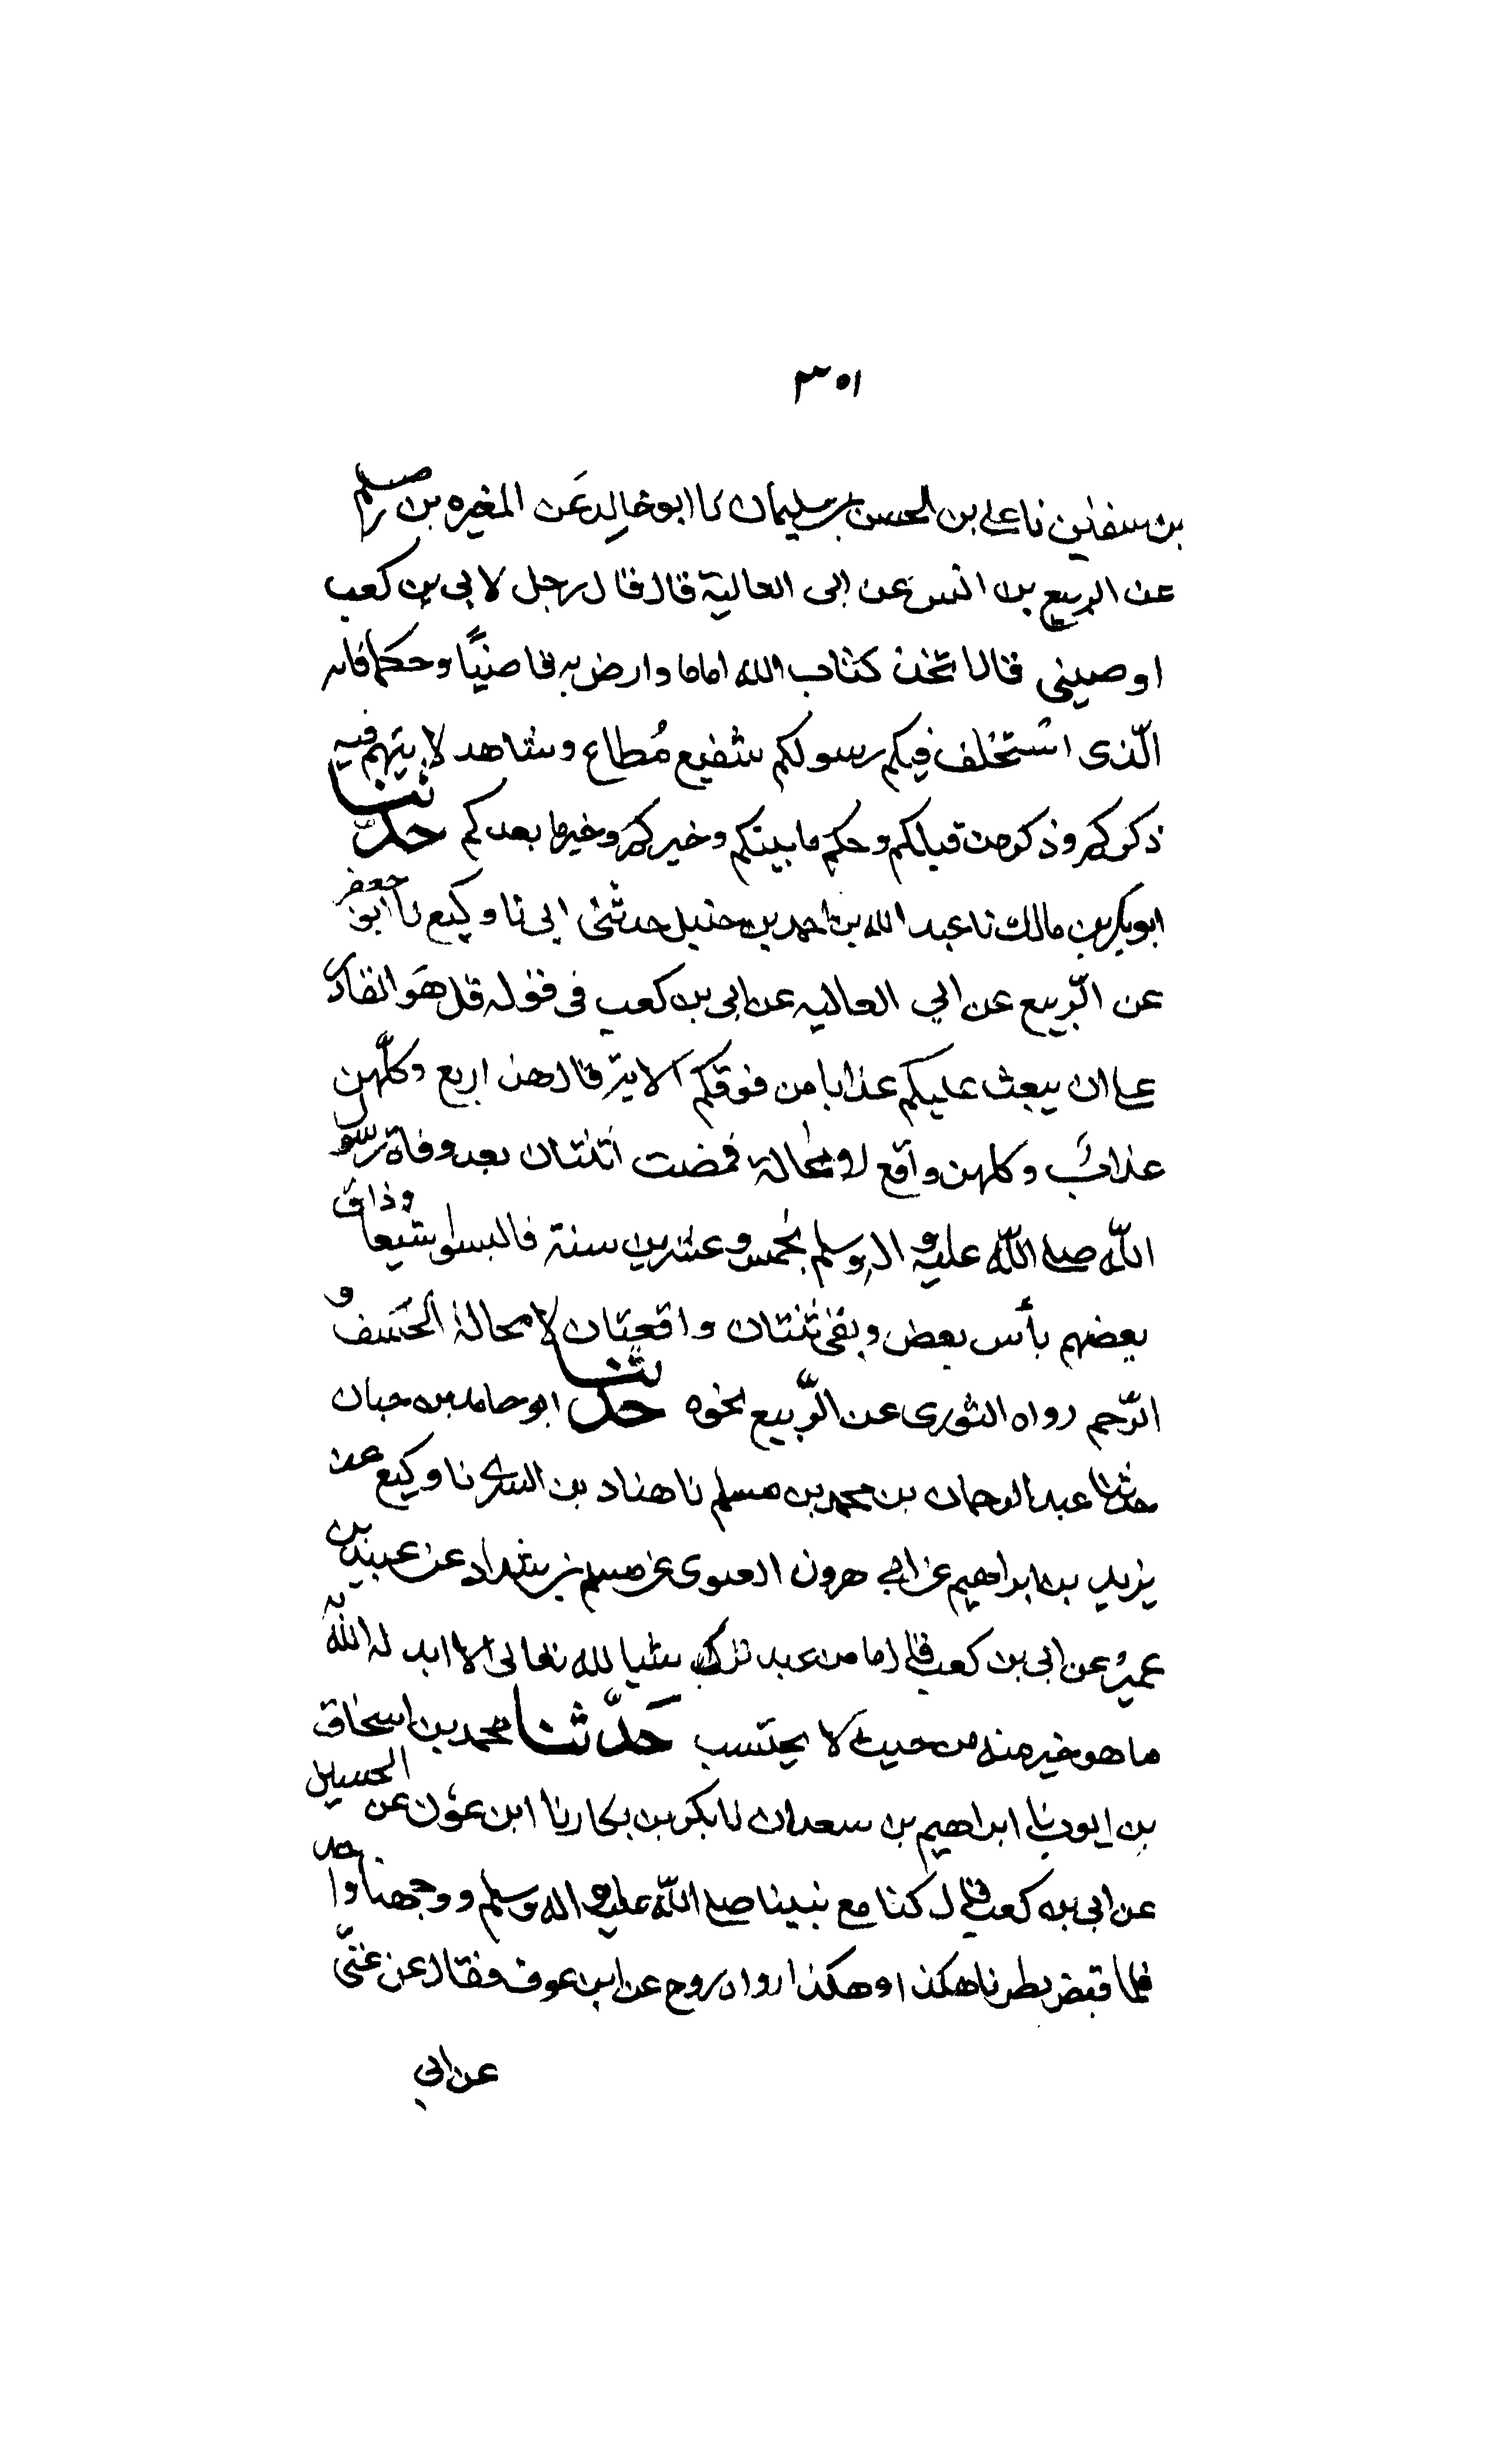 ٣٥١
بن سفين نا علي بن الحسن بن سليمان نا ابو خالد عن المغيره بن مسلم
عن الربيع بن انس عن ابى العالية قال قال رجل لابي بن كعب
اوصيني قال اتخذ كتاب الله اماما وارض به قاضيًا وحكما فانه
الّذى استخلف فيكم رسولكم شفيع مُطاع وشاهد لا يتهم فيه
ذكركم وذكر من قبلكم وحكم ما بينكم وخيركم وخير ما بعدكم حدّثنا
ابو بكر بن مالك نا عبد الله بن احمد بن حنبل حدثنى ابى نا وكيع نا ابو جعفر
عن الرّبيع عن ابي العاليه عن ابى بن كعب فى قوله قل هَو القادر
على ان يبعث عليكم عذابا من فوقكم الاية قال هن اربع وكلّهن
عذاب وكلهن واقع لا محالة فمضت اثنتان بعد وفاة رسول
اللّه صلى اللّه عليه و اله وسلم بخمس وعشرين سنة فالبسوا شيعا وذاق
بعضهم بأس بعض وبقى ثنتان واقعتان لا محالة الخسف و
الرّجم رواه الثورى عن الرّبيع نحوه حدثنا ابو حامد بن حبان
حدثنا عبد الرحمان بن محمد بن مسلم نا هناد بن السرى نا وكيع عن
يزيد بن ابراهيم عن ابي هرون الغنوى عن مسلم بن شداد عن عبيد بن
عمير عن ابى بن كعب قال ما من عبد ترك شيا لله تعالى الا ابد له اللّه به
ما هو خير منه من حيث لا يحتسب حَدّثنا محمد بن اسحاق
بن ايوب نا ابراهيم بن سعدان نا بكر بن بكار نا ابن عون عن الحسين
عن ابى بن كعب قال كنا مع نبينا صلى اللّه عليه و اله وسلم ووجهنا واحد
فلما قبض نظرنا هكذا وهكذا رواه روح عن ابن عوف فقال عن عتىّ
عن ابي